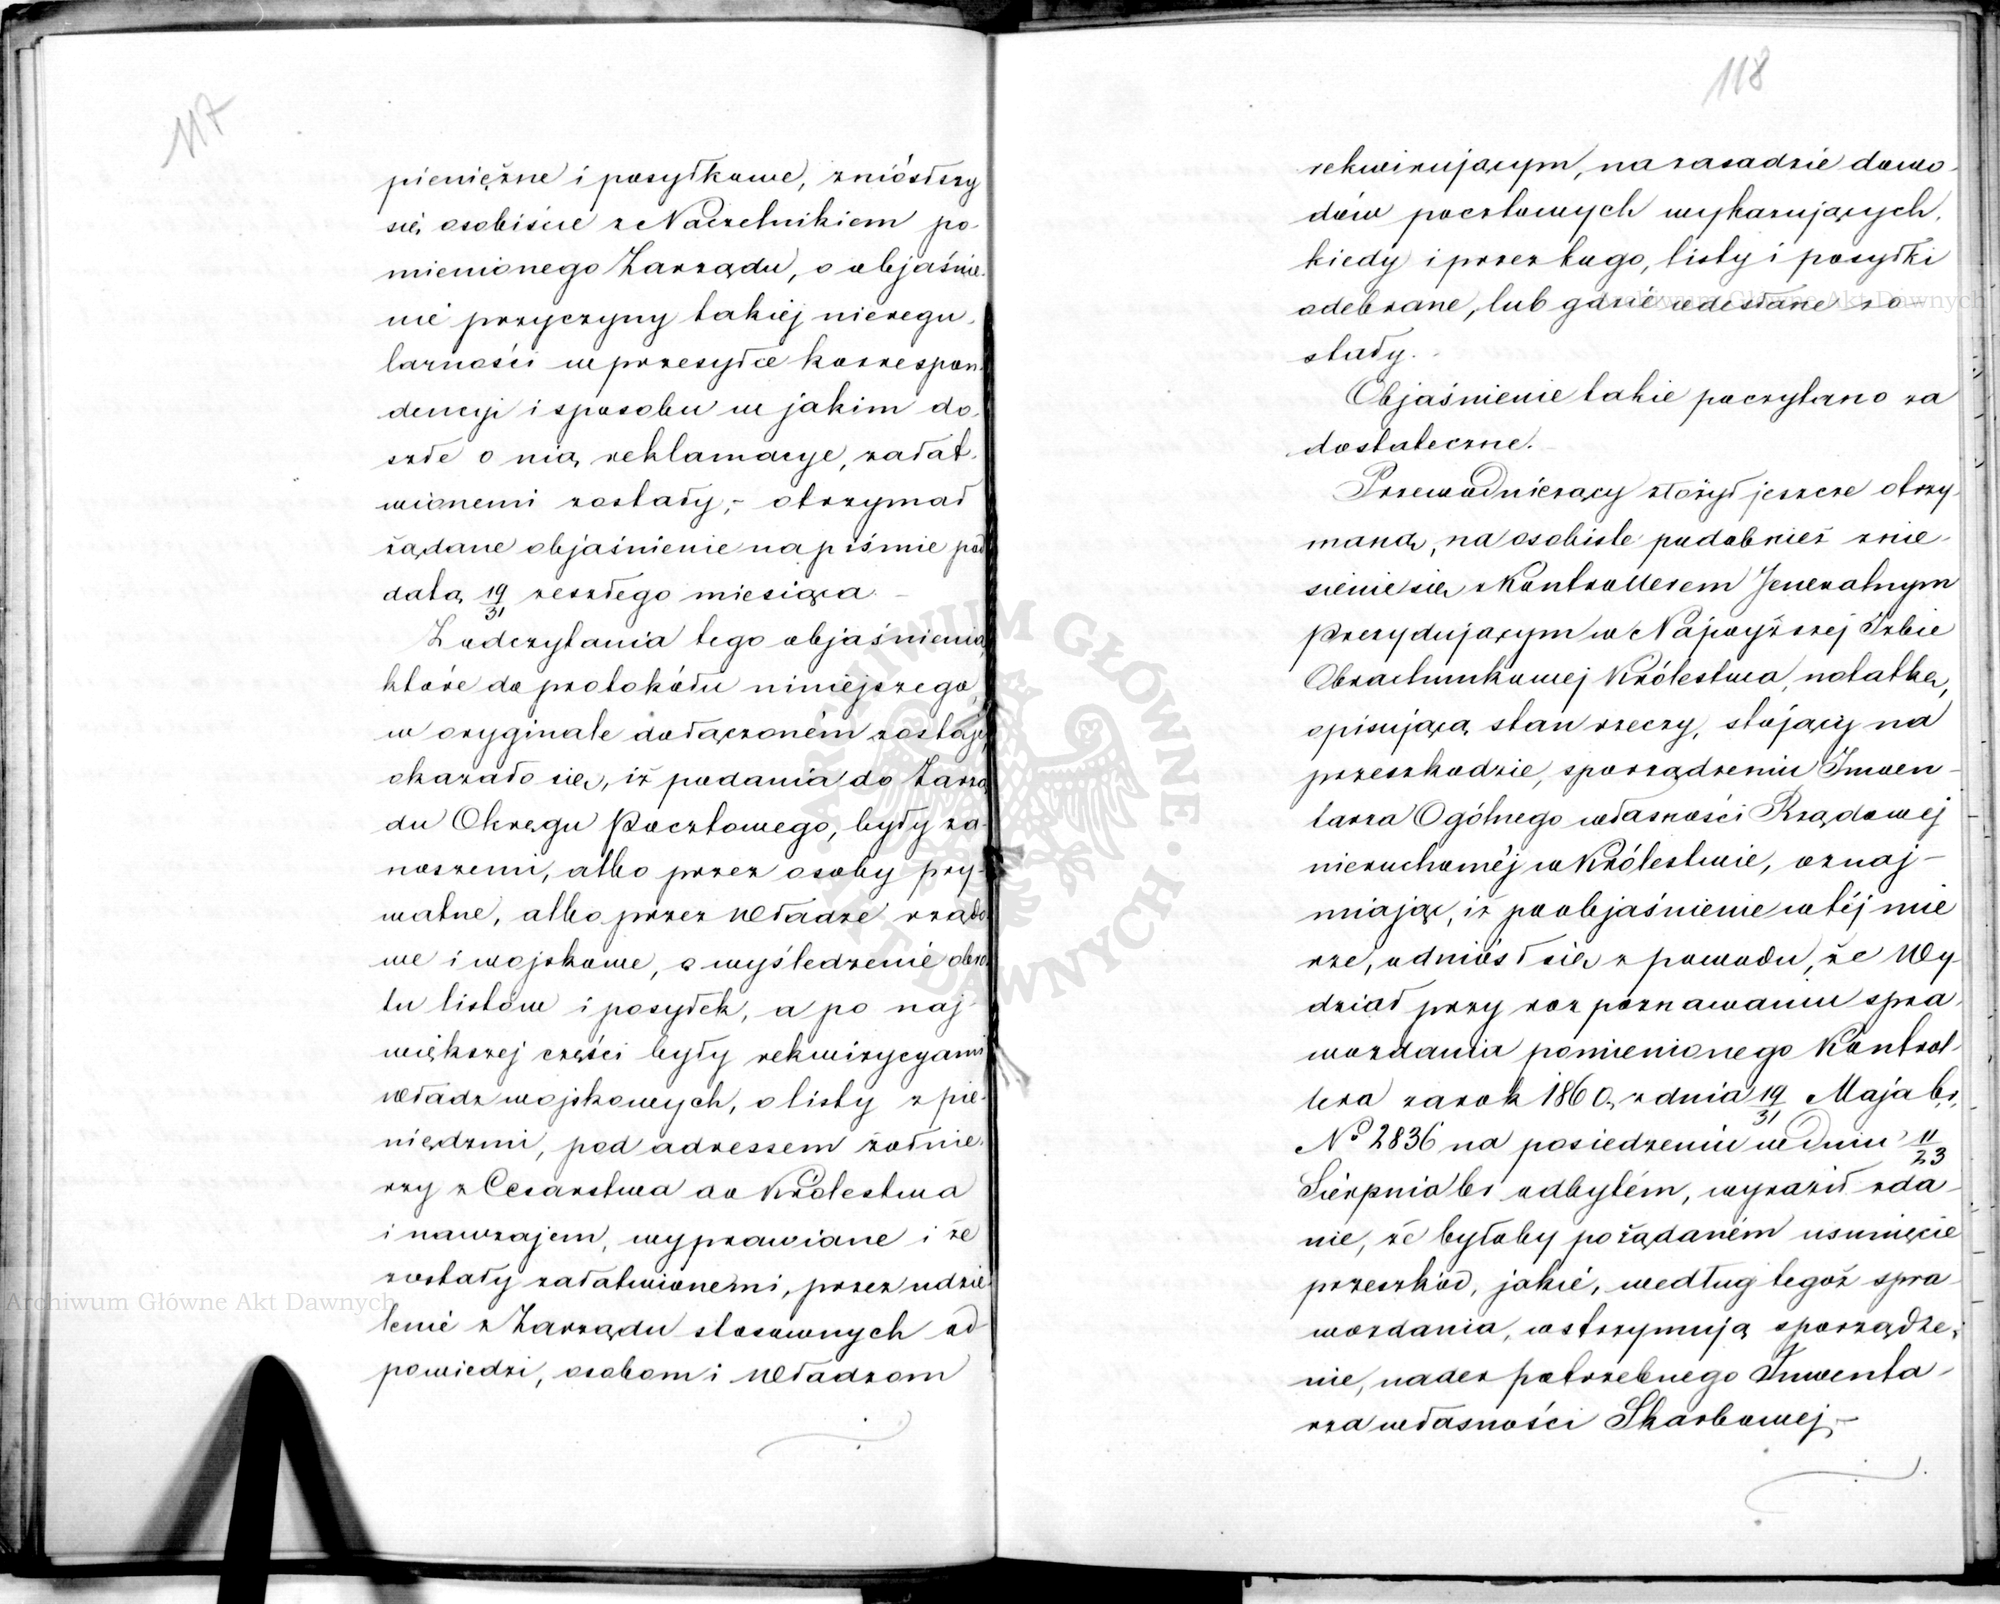 117
pieniężne i posyłkowe, zniósłszy
się osobiście z Naczelnikiem po-
mienionego Zarządu, o objaśnie-
nie przyczyny takiéj nieregu-
larności w przesyłce korrespon-
dencyi i sposobu w jakim do-
szłe o nią reklamacye, załat-
wionemi zostały,- otrzymał
żądane objaśnienie na piśmie pod
datą 19/31 zeszłego miesiąca. -
Z odczytania tego objaśnienia,
które do protokółu niniejszego
w oryginale dołączoném zostaje,
okazało się, iż podania do Zarzą-
du Okręgu Pocztowego, były za-
noszemi, albo przez osoby pry-
watne, albo przez Władze rządo-
we i wojskowe, o wyśledzenie obro-
tu listów i posyłek, a po naj-
większej części były rekwizycyami
Władz wojskowych, o listy z pie-
niędzmi, pod adressem żołnie-
rzy z Cesarstwa do Królestwa
i nawzajem, wyprawiane i że
zostały załatwionemi, przez udzie-
lenie z Zarządu stosownych od-
powiedzi, osobom i Władzom
118
rekwirującym, na zasadzie dowo-
dów pocztowych wykazujących,
kiedy i przez kogo, listy i posyłki
odebrane, lub gdzie odesłane zo
stały.
Objaśnienie takie poczytano za
dostateczne.
Przewodniczący złożył jeszcze otrzy-
maną, na osobiste podobnież znie-
sienie się z Kontrollerem Jeneralnym
Prezydującym w Najwyższej Izbie
Obrachunkowej Królestwa, notatkę,
opisującą stan rzeczy, stojący na
przeszkodzie, sporządzeniu Inwen-
tarza Ogólnego własności Rządowej
nieruchoméj w Królestwie, oznaj-
miając, iż po objaśnienie w téj mie
rze, odniósł się z powodu, że Wy-
dział przy rozpoznawaniu spra-
wozdania pomienionego Kontrol-
lera za rok 1860, z dnia 19/31 Maja b.r.
No 2836 na posiedzeniu w Dniu 11/23
Sierpnia br odbytém, wyraził zda-
nie, że byłoby pożądaném usunięcie
przeszkód, jakie, według tegoż spra-
wozdania, wstrzymują sporządze-
nie, nader potrzebnego Inwenta-
rza własności Skarbowej.-
Archiwum Główne Akt Dawnych
Archiwum Główne Akt Dawnych
ARCHIWUM GŁÓWNE AKT DAWNYCH